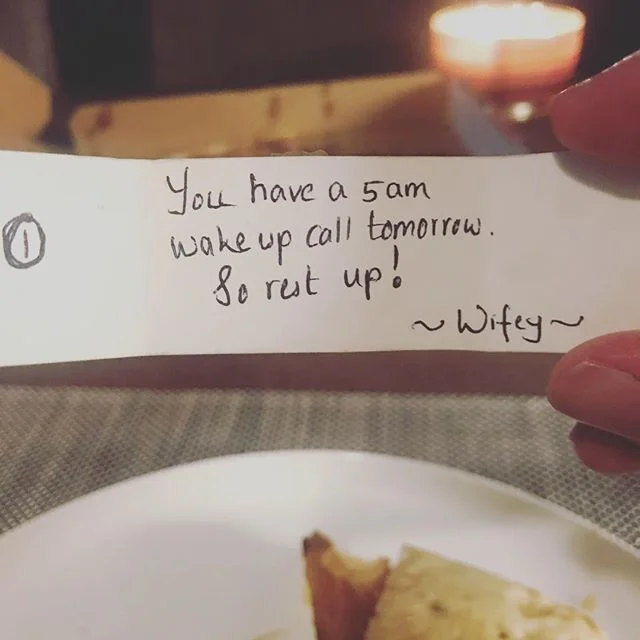 ①
You have a 5am
wake up call tomorrow.
So rest up!
~Wifey~